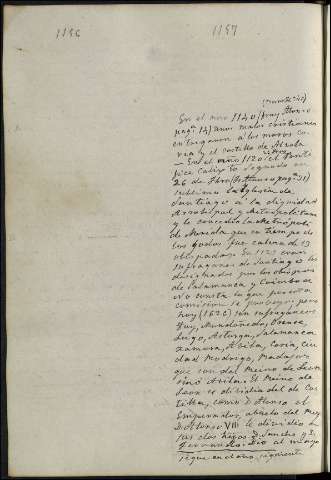 1156 1157
En el año 1140 (fray Alonso
pagª 14) unos malos cristianos
entregaron á los moros Co-
ria y el castillo de Alvala
— En el año 1120 el Pontí
fice Calixto segundo en
26 de
sublimó la Iglesia de
Santiago á la dignidad
Arzobispal y Metropolitana
y le concedió la Metrópoli
de Merida que en tiempo de
los Godos fue cabeza de 13
obispados. En 1123 eran
sufraganeos de Santiago los
los obispos
de Salamanca y Coimbra
No consta lo que
hoy (1626) son sufraganeos
Tuy, Mondoñedo, Orense,
Lugo, Astorga, Salamanca
Zamora, Avila, Coria, Ciu
dad Rodrigo, Badajoz
que son del Reino de Leon
sinó Avila. El Reino de
Leon se dividia del de Cas
tilla, como D Alonso el
Emperador, abuelo del Rey
D Alonso VIII le dividió en
sus dos hijos D Sancho y D.
Fernando. Dió al mayo
sigue en el año siguiente